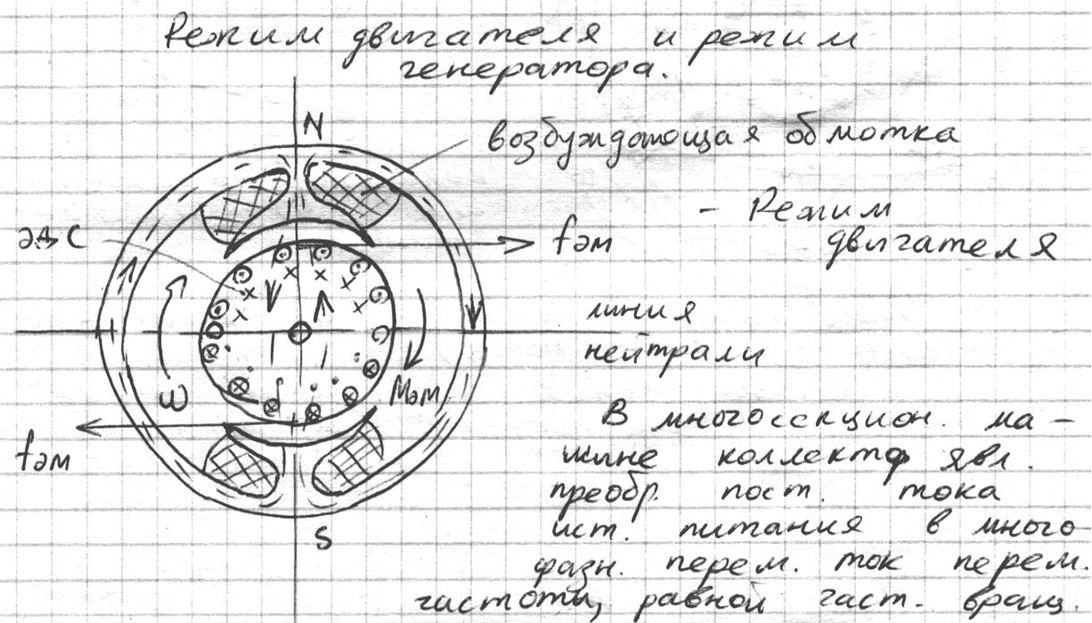 Режим двигателя и режим
генератора.
N
возбуждающая обмотка
- Режим
двигателя
эдс
fэм
линия
нейтрали
ω
Mэм
fэм
S
В многосекцион. ма-
шине коллектор явл.
преобр. пост. тока
ист. питания в много
фазн. перем. ток перем.
частоты, равной част. вращ.